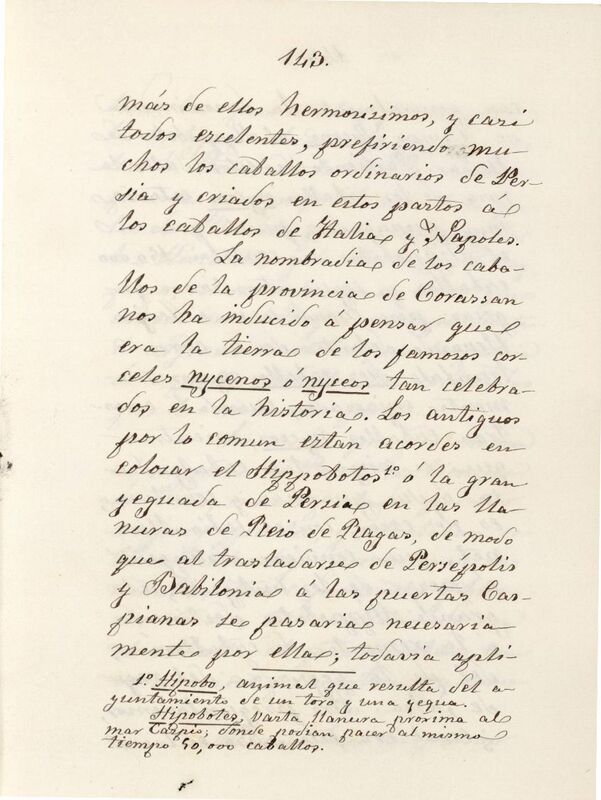 143.
más de ellos hermosisimos, y casi
todos escelentes, prefiriendo mu-
chos los caballos ordinarios de Per-
sia y criados en estos partos á
los caballos de Italia y Napoles.
La nombradia de los caba-
llos de la provincia de Corassan
nos ha inducido á pensar que
era la tierra de los famosos cor-
celes nycenos ó nyceos tan celebra-
dos en la historia. Los antiguos
por lo comun están acordes en
colocar el Hippobotos 1º ó la gran
yeguada de Persia en las lla-
nuras de Reio de Ragas, de modo
que al trasladarse de Persépolis
y Babilonia á las puertas Cas-
pianas se pasaria necesaria
mente por ella; todavia apli-
1º Hipobo, animal que resulta del a-
yuntamiento de un toro y una yegua.
Hipobotes, vasta llanura próxima al
mar Caspio; donde podian pacer al mismo
tiempo 50,000 caballos.